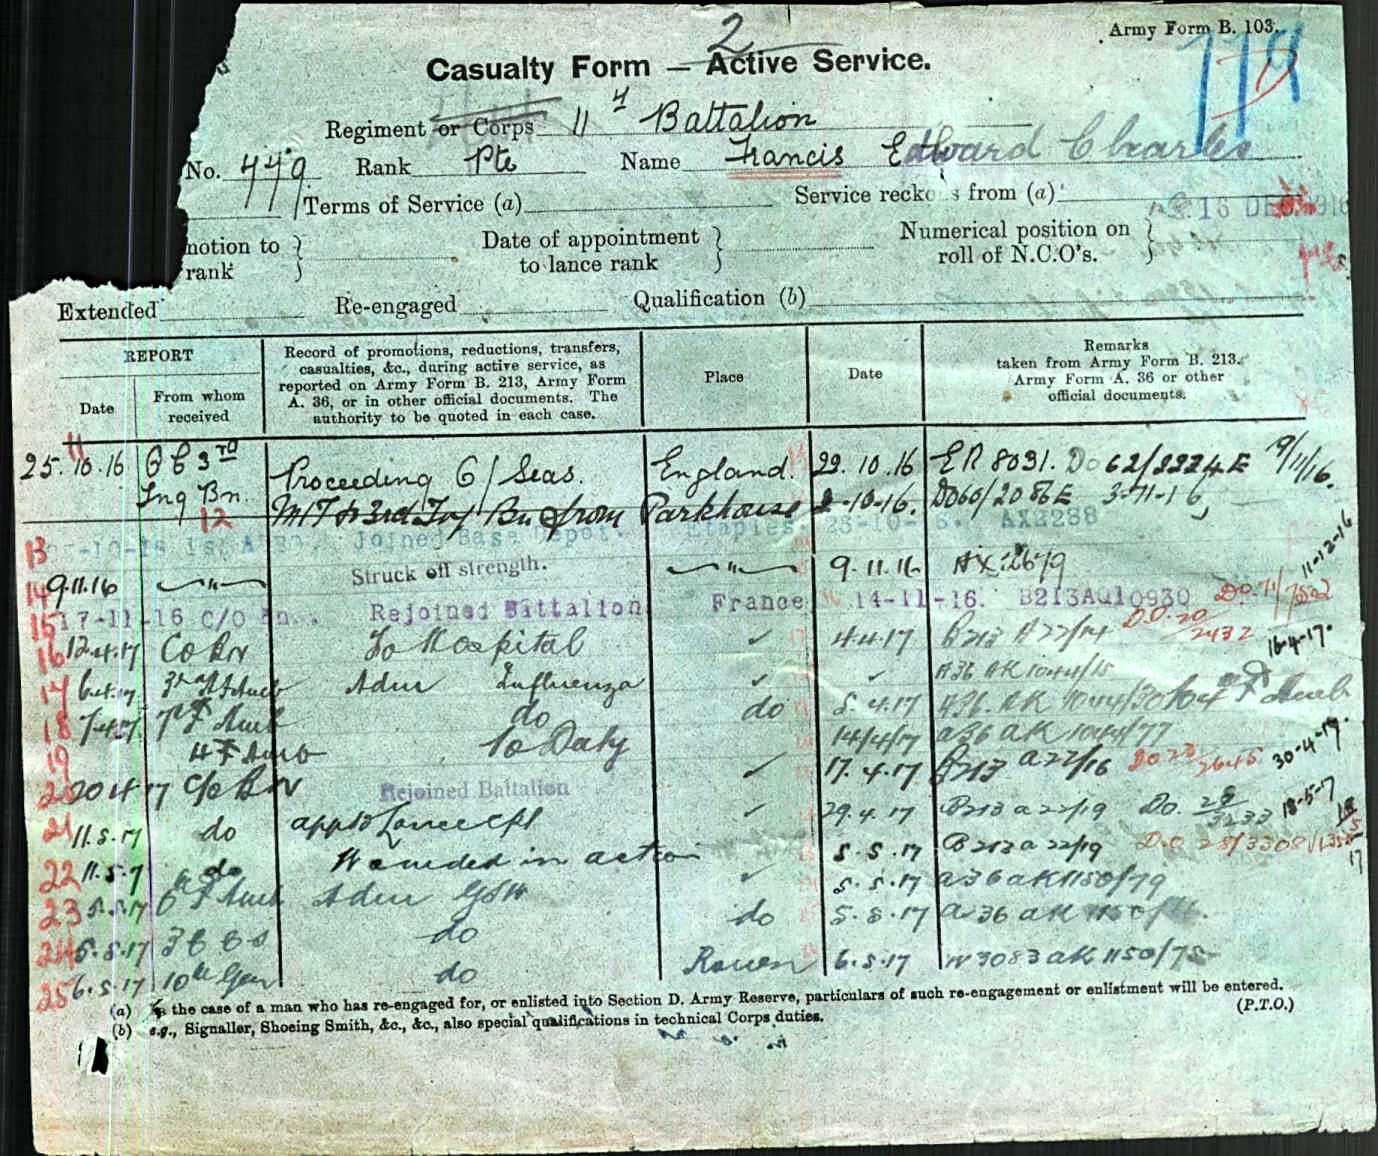 2
Army Form B. 103.
779
Casualty Form — Active Service.
Regiment or Corps 11th Battalion
No. 779 Rank Pte Name Francis Edward Charles
Terms of Service (a) Service reckons from (a)
16 DEC 1916
motion to rank } Date of appointment to lance rank } Numerical position on roll of N.C.O's. }
Extended Re-engaged Qualification (b)
REPORT
Date
From whom received
Record of promotions, reductions, transfers, casualties, &c., during active service, as reported on Army Form B. 213, Army Form A. 36, or in other official documents. The authority to be quoted in each case.
Place
Date
Remarks taken from Army Form B. 213. Army Form A. 36 or other official documents.
11
25.10.16 OC 3rd Trng Bn. Proceeding O/Seas. England. 29.10.16 ER 8031. Do 62/2224E 9/11/16.
12 from Parkhouse -10-16. DO60/2086E 3-11-16
13 -10-16 1st A Joined Base Depot. Etaples. 28-10-16. AX2288
14 9.11.16 —"— Struck off strength. —"— 9.11.16 AX 2679 11-12-16
15 17-11-16 C/O Bn. Rejoined Battalion France 14-11-16. B213AQ10930 DO.71/752
16 12.4.17 CO Bn To Hospital ✓ 4.4.17 B213 A22/14 D.O.20/2432 16-4-17.
17 6.4.17 3rd A F Amb Adm Influenza ✓ ✓ A36 AK 1044/15
18 7.4.17 7th F Amb do do 8.4.17 A36. AK 1044/30 F Amb
19 4 F Amb To Duty 14/4/17 A36 AK 1044/77
20 20.4.17 C/o Bn Rejoined Battalion ✓ 17.4.17 B213 A22/16 DO 23/2645 30-4-17.
21 11.5.17 do app to Lance Cpl ✓ 29.4.17 B213 A 22/19 DO. 28/3233 18-5-17
22 11.5.17 do Wounded in action ✓ 5.5.17 B213 A 22/19 D.O 28/3308 18/5/17
23 5.5.17 6 F Amb Adm GSW 5.5.17 A36 AK1150/79
24 5.5.17 3 CCS do do 5.5.17 A36 AK 1150/
25 6.5.17 10th Gen do Rouen 6.5.17 W3083 AK 1150/75
(a) In the case of a man who has re-engaged for, or enlisted into Section D. Army Reserve, particulars of such re-engagement or enlistment will be entered.
(b) e.g., Signaller, Shoeing Smith, &c., &c., also special qualifications in technical Corps duties.
(P.T.O.)